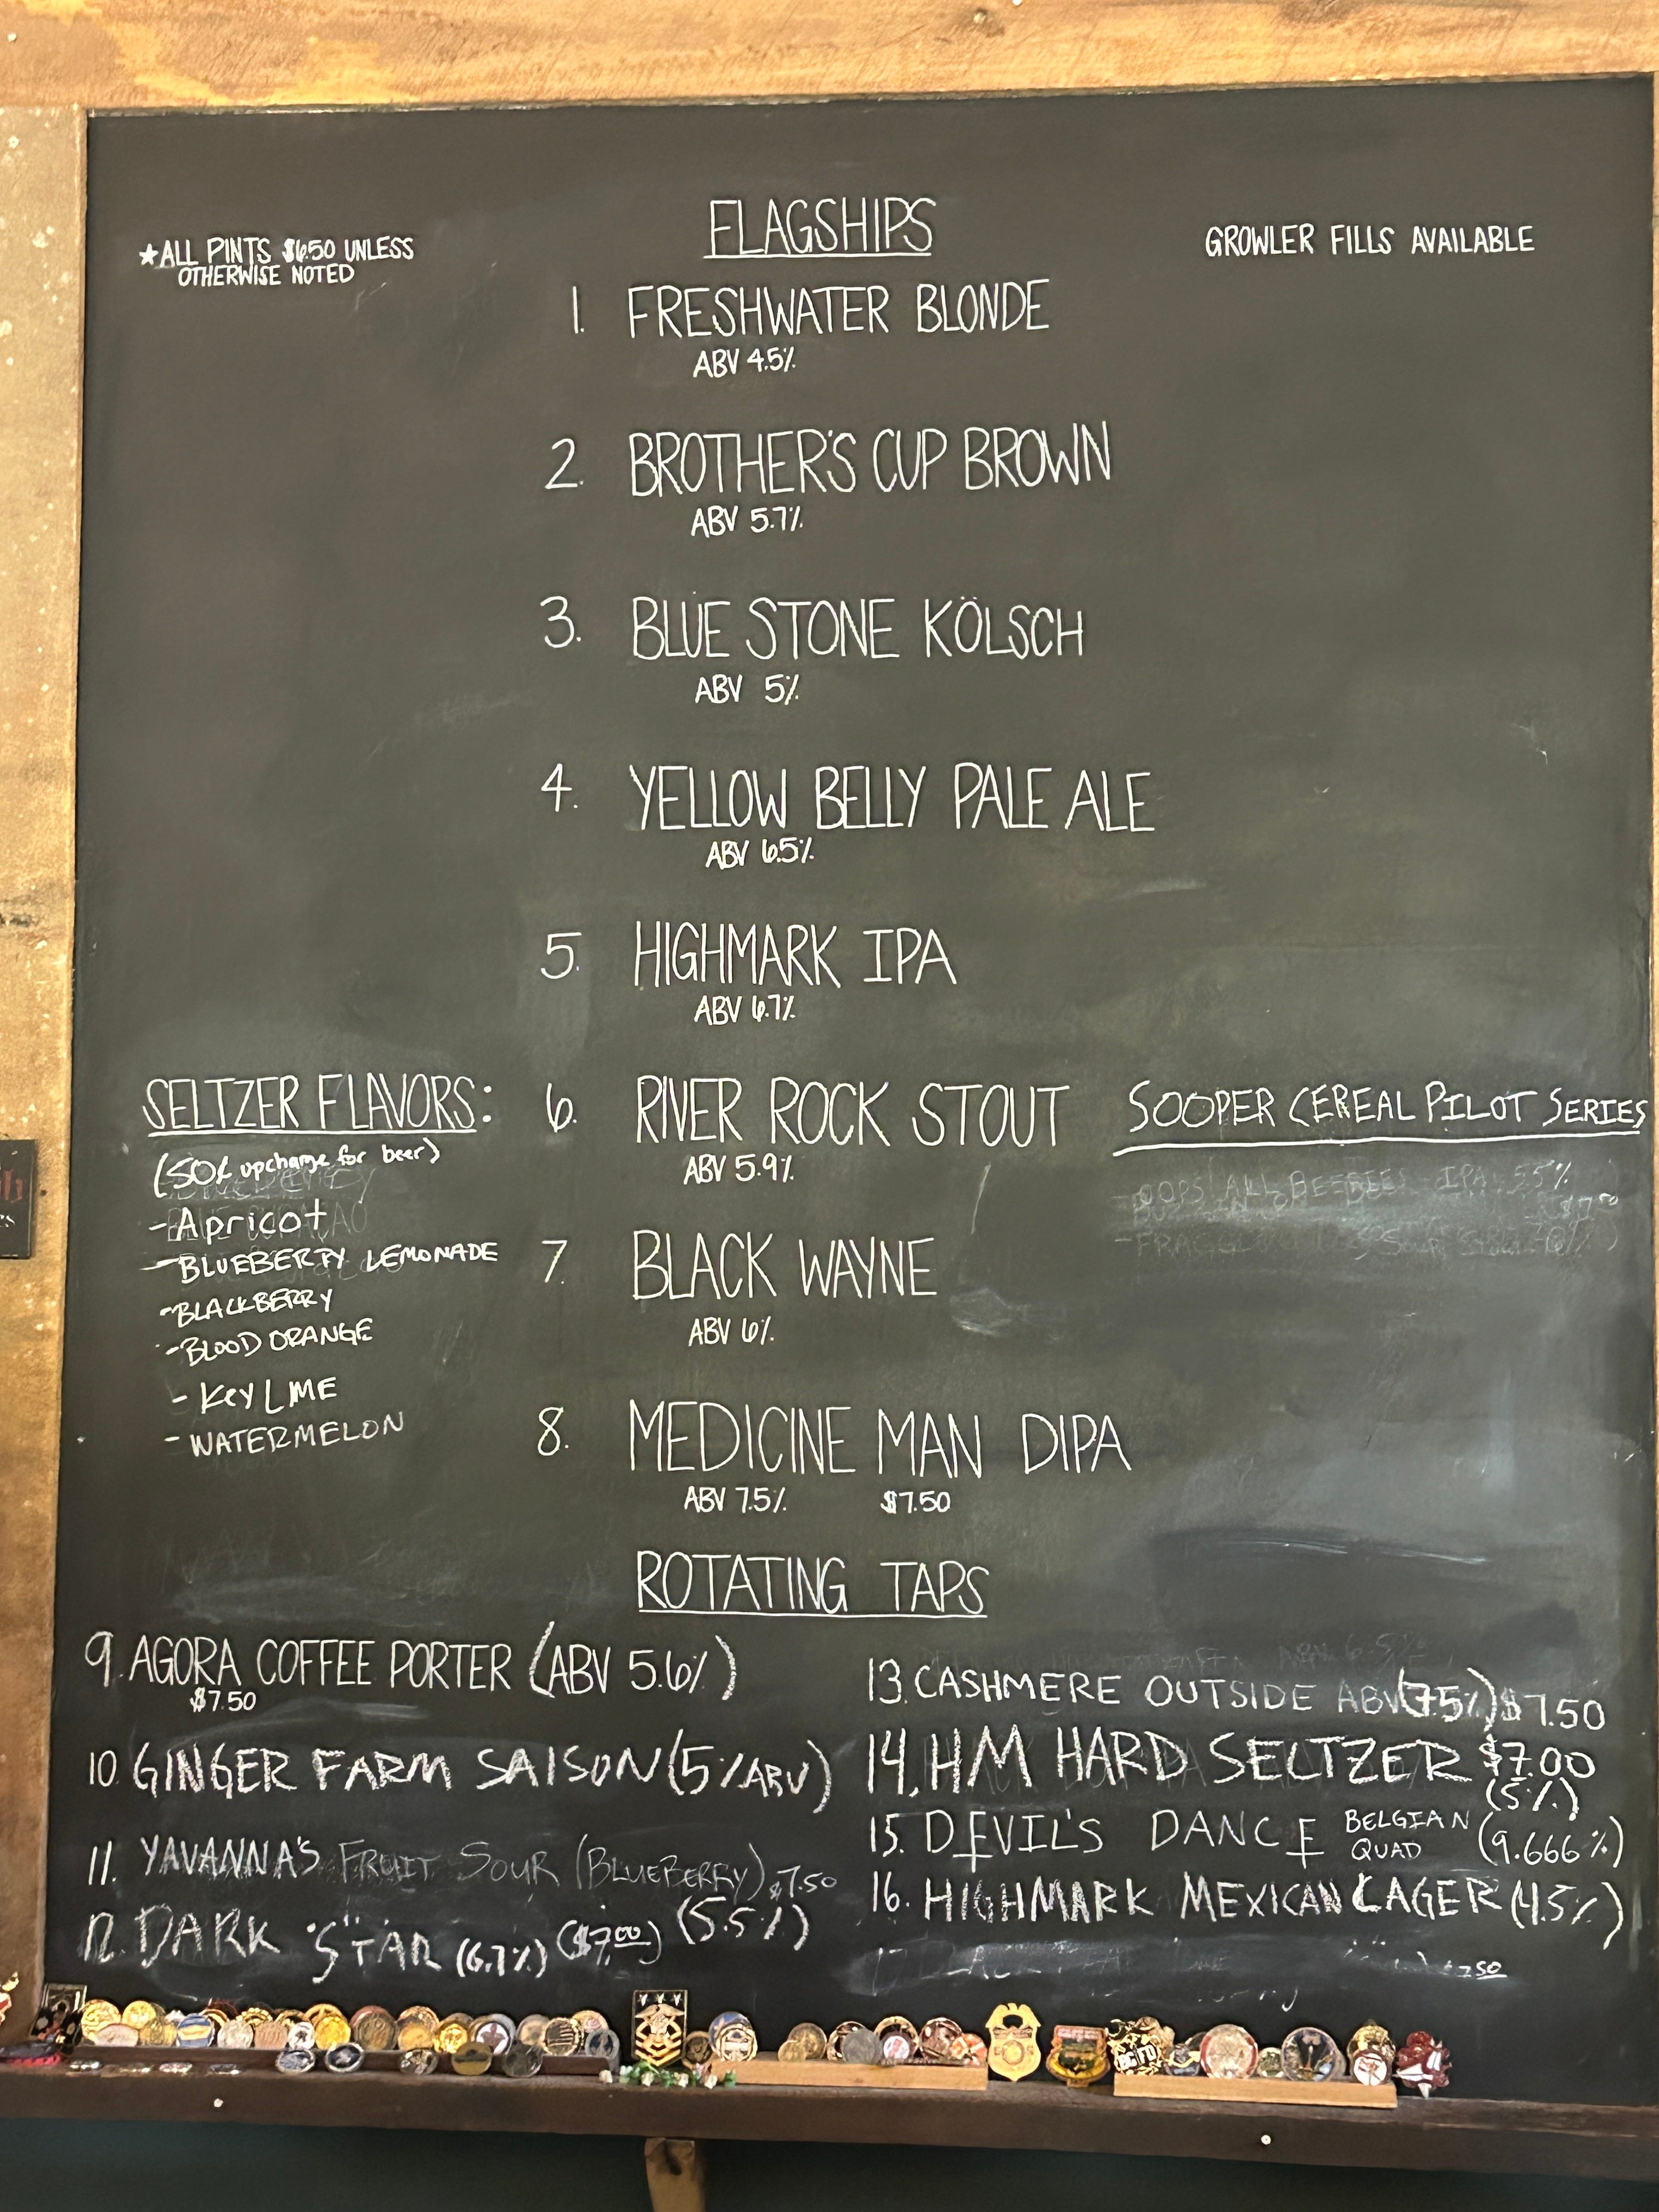 FLAGSHIPS
★ALL PINTS $6.50 UNLESS
OTHERWISE NOTED
GROWLER FILLS AVAILABLE
1. FRESHWATER BLONDE
ABV 4.5%
2. BROTHER'S CUP BROWN
ABV 5.7%
3. BLUE STONE KÖLSCH
ABV 5%
4. YELLOW BELLY PALE ALE
ABV 6.5%
5. HIGHMARK IPA
ABV 6.7%
6. RIVER ROCK STOUT
ABV 5.9%
7. BLACK WAYNE
ABV 6%
8. MEDICINE MAN DIPA
ABV 7.5% $7.50
SELTZER FLAVORS:
(50¢ upcharge for beer)
- Apricot
- BLUEBERRY LEMONADE
- BLACKBERRY
- BLOOD ORANGE
- Key LIME
- WATERMELON
SOOPER CEREAL PILOT SERIES
OOPS! ALL BEERIES IPA 5.5%
ROTATING TAPS
9. AGORA COFFEE PORTER (ABV 5.6%)
$7.50
10. GINGER FARM SAISON (5% ABV)
11. YAVANNA'S FRUIT SOUR (BLUEBERRY) $7.50
(5.5%)
12. DARK "STAR (6.7%) ($7.00)
13. CASHMERE OUTSIDE ABV (7.5%) $7.50
14. HM HARD SELTZER $7.00
(5%)
15. DEVIL'S DANCE BELGIAN QUAD (9.666%)
16. HIGHMARK MEXICAN LAGER (4.5%)